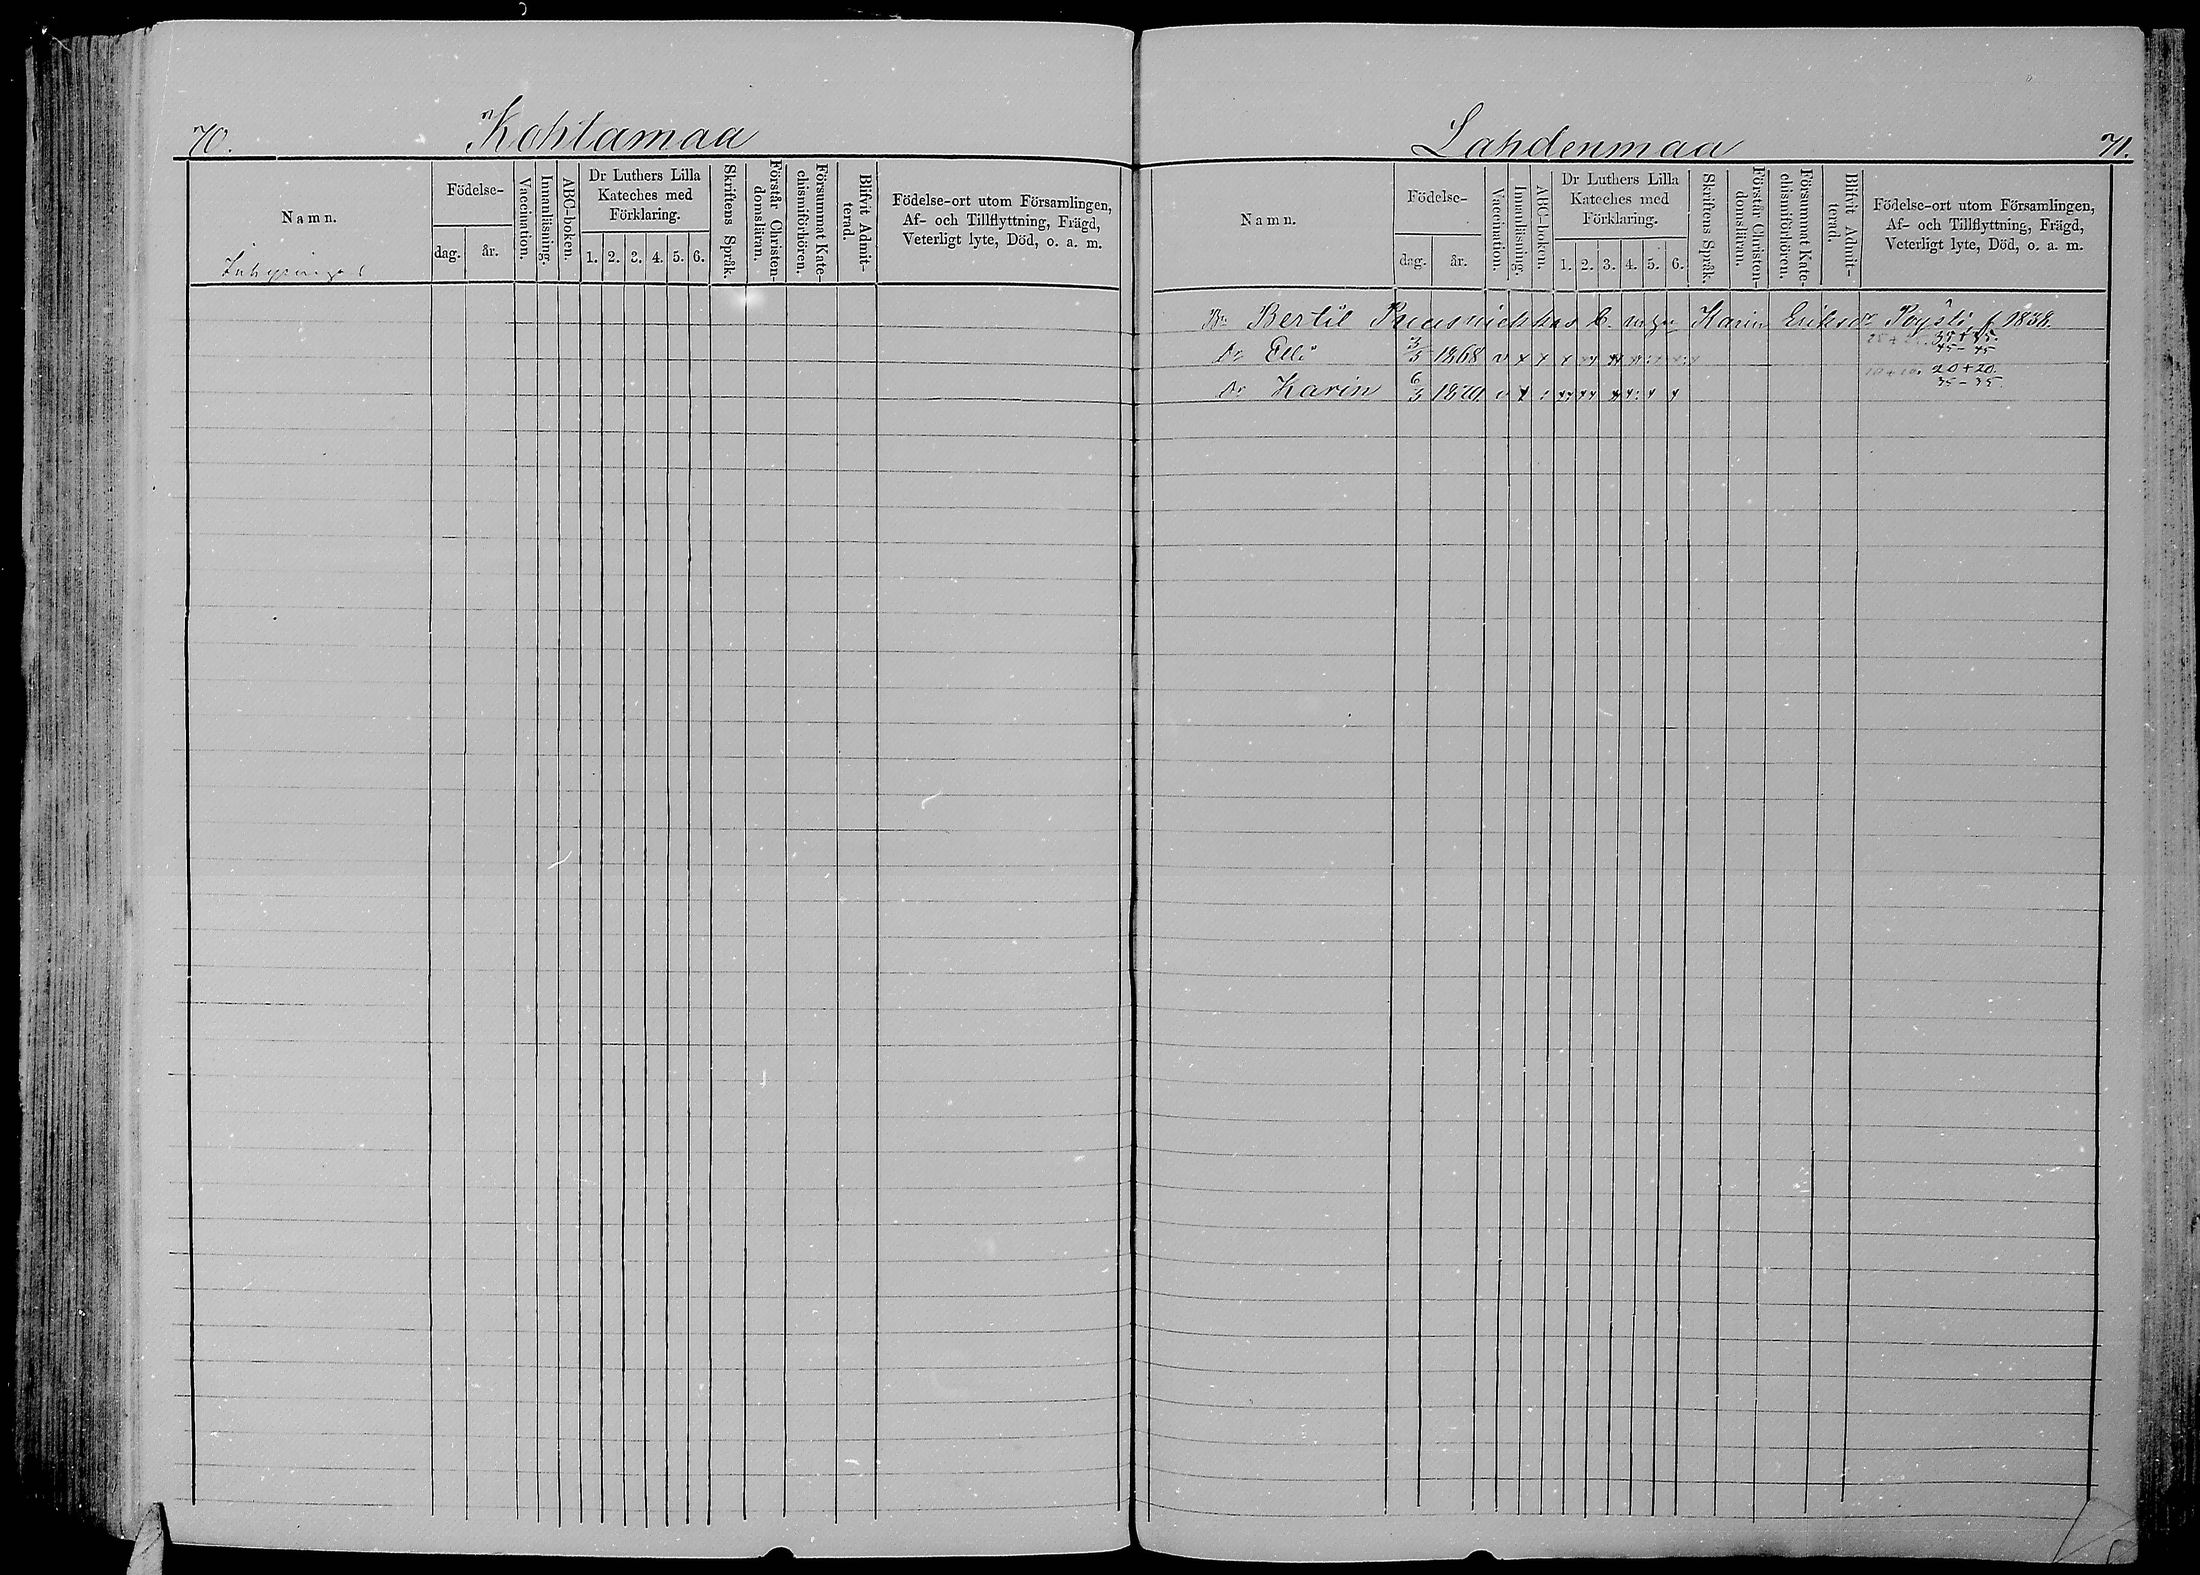 70.
Kohtamaa
Namn.
Födelse-
dag.
år.
Vaccination.
Innanläsning.
ABC-boken.
Dr Luthers Lilla
Kateches med
Förklaring.
1. 2. 3. 4. 5. 6.
Skriftens Språk.
Förstår Christen-
domsläran.
Försummat Kate-
chismiförhören.
Blifvit Admit-
terad.
Födelse-ort utom Församlingen,
Af- och Tillflyttning, Frägd,
Veterligt lyte, Död, o. a. m.
Lahdenmaa
71.
Namn.
Födelse-
dag.
år.
Vaccination.
Innanläsning.
ABC-boken.
Dr Luthers Lilla
Kateches med
Förklaring.
1. 2. 3. 4. 5. 6.
Skriftens Språk.
Förstår Christen-
domsläran.
Försummat Kate-
chismiförhören.
Blifvit Admit-
terad.
Födelse-ort utom Församlingen,
Af- och Tillflyttning, Frägd,
Veterligt lyte, Död, o. a. m.
Bertil Karin f 1838.
Dr Elli 3/5 1868 35+45.
45-45
Dr Karin 6/5 10+10. 20+20.
35-35.